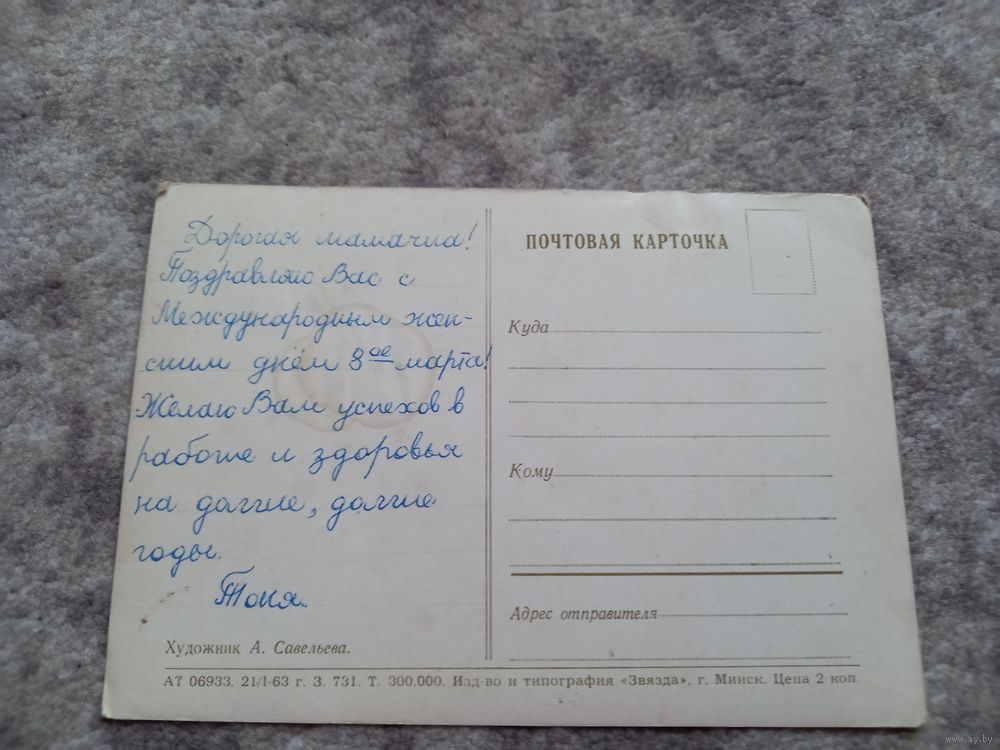 Дорогая мамачка!
Поздравляю Вас с
Международным жен-
ским днём 8ое марта!
Желаю Вам успехов в
работе и здоровья
на долгие, долгие
годы.
Тоня.
Художник А. Савельева.
ПОЧТОВАЯ КАРТОЧКА
Куда
Кому
Адрес отправителя
АТ 06933. 21/I-63 г. З. 731. Т. 300.000. Изд-во и типография «Звязда», г. Минск. Цена 2 коп.
www.ay.by